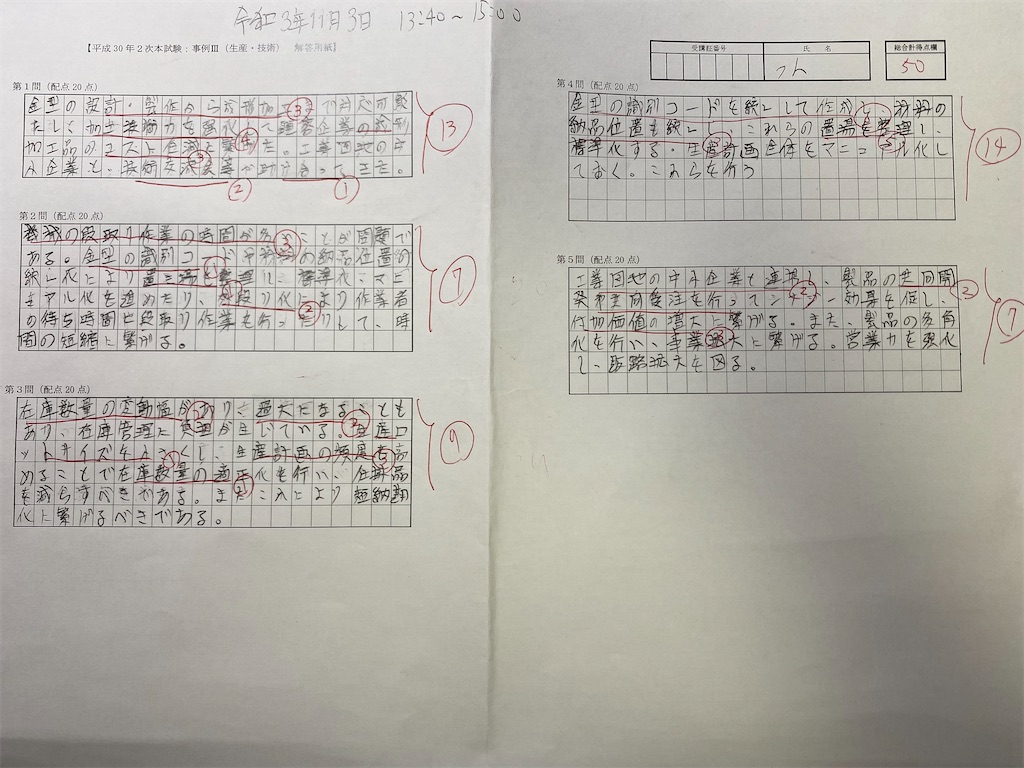 令和3年11月3日 13:40～15:00
【平成30年2次本試験：事例Ⅲ（生産・技術） 解答用紙】
受講証番号
氏 名
総合計得点欄
50
第1問（配点20点）
金型の設計・製作から成形加工まで対応可能
たしく加工技術力を強化して企業の成形
加工品のコスト た。工業団地の中
小企業と、技術 助け合ってきた。
③
④
③
②
①
13
第2問（配点20点）
の段取り作業の時間が多いことが問題で
ある。金型の識別コードや の納品位置の
統一化により置き場を整理し、標準化、マニ
ュアル化を進めたり、 段取り化により作業者
の待ち時間に段取り作業を行ったりして、時
間の短縮に繋げる。
③
②
7
第3問（配点20点）
在庫数量の変動幅があり、過大になることも
あり、在庫管理に 生じている。生産ロ
ットサイズを小さくし、生産計画の頻度を高
めることで在庫数量の適正化を行い、
を減らすべきである。また により短納期
化に繋げるべきである。
9
第4問（配点20点）
金型の識別コードを統一して作成し、材料の
納品位置も統一し、これらの置場を整理し、
標準化する。生産計画全体をマニュアル化し
ておく。これらを行う
14
第5問（配点20点）
工業団地の中小企業と連携し、製品の共同開
発や共同受注を行ってシナジー効果を促し、
付加価値の増大に繋げる。また、製品の多角
化を行い、事業拡大に繋げる。営業力を強化
し、販路拡大を図る。
②
7